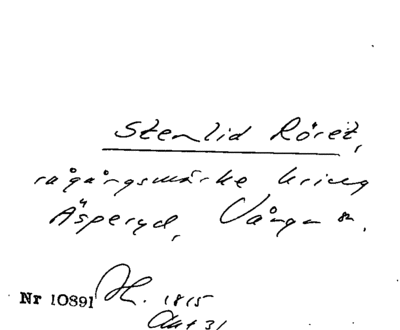 Stenlid Röret,
rågångsmärke kring
Äsperyd, Vånga sn.
Nr 10891 H. 1815
Akt 31